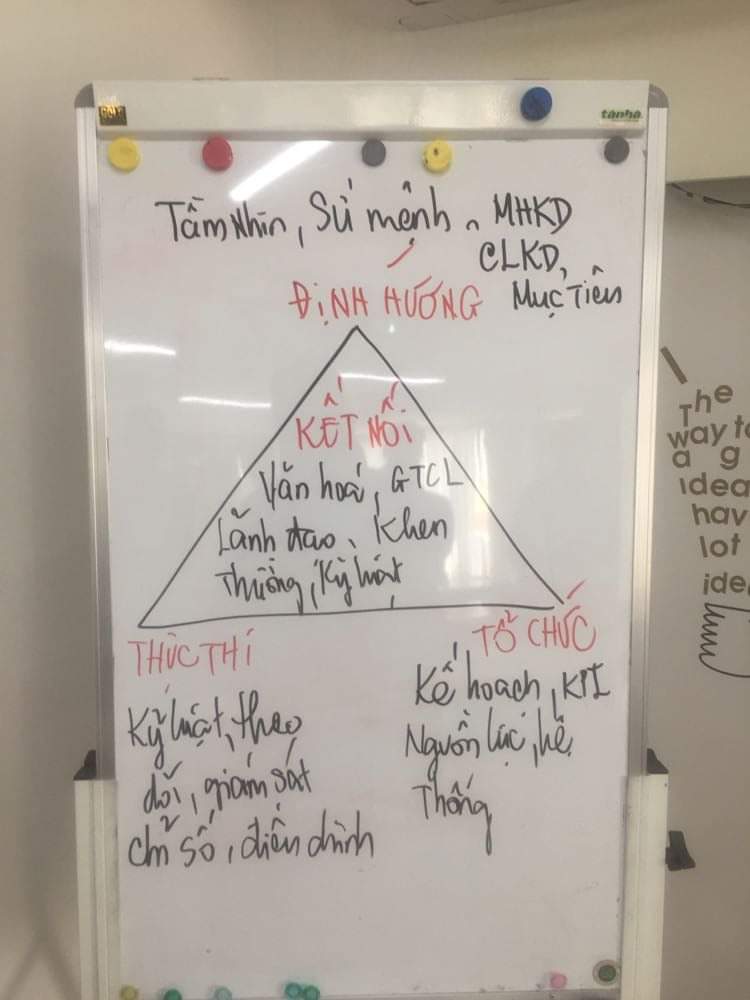 tânhà
Tầm Nhìn, Sứ mệnh, MHKD
CLKD,
Mục Tiêu
ĐỊNH HƯỚNG
KẾT NỐI
Văn hoá, GTCL
Lãnh đạo, Khen
Thưởng, Kỷ luật
THỰC THI
TỔ CHỨC
Kỷ luật, theo
dõi, giám sát
chỉ số, điều chỉnh
Kế hoạch, KPI
Nguồn lực, hệ
Thống
The
way to
a g
idea
hav
lot
idea